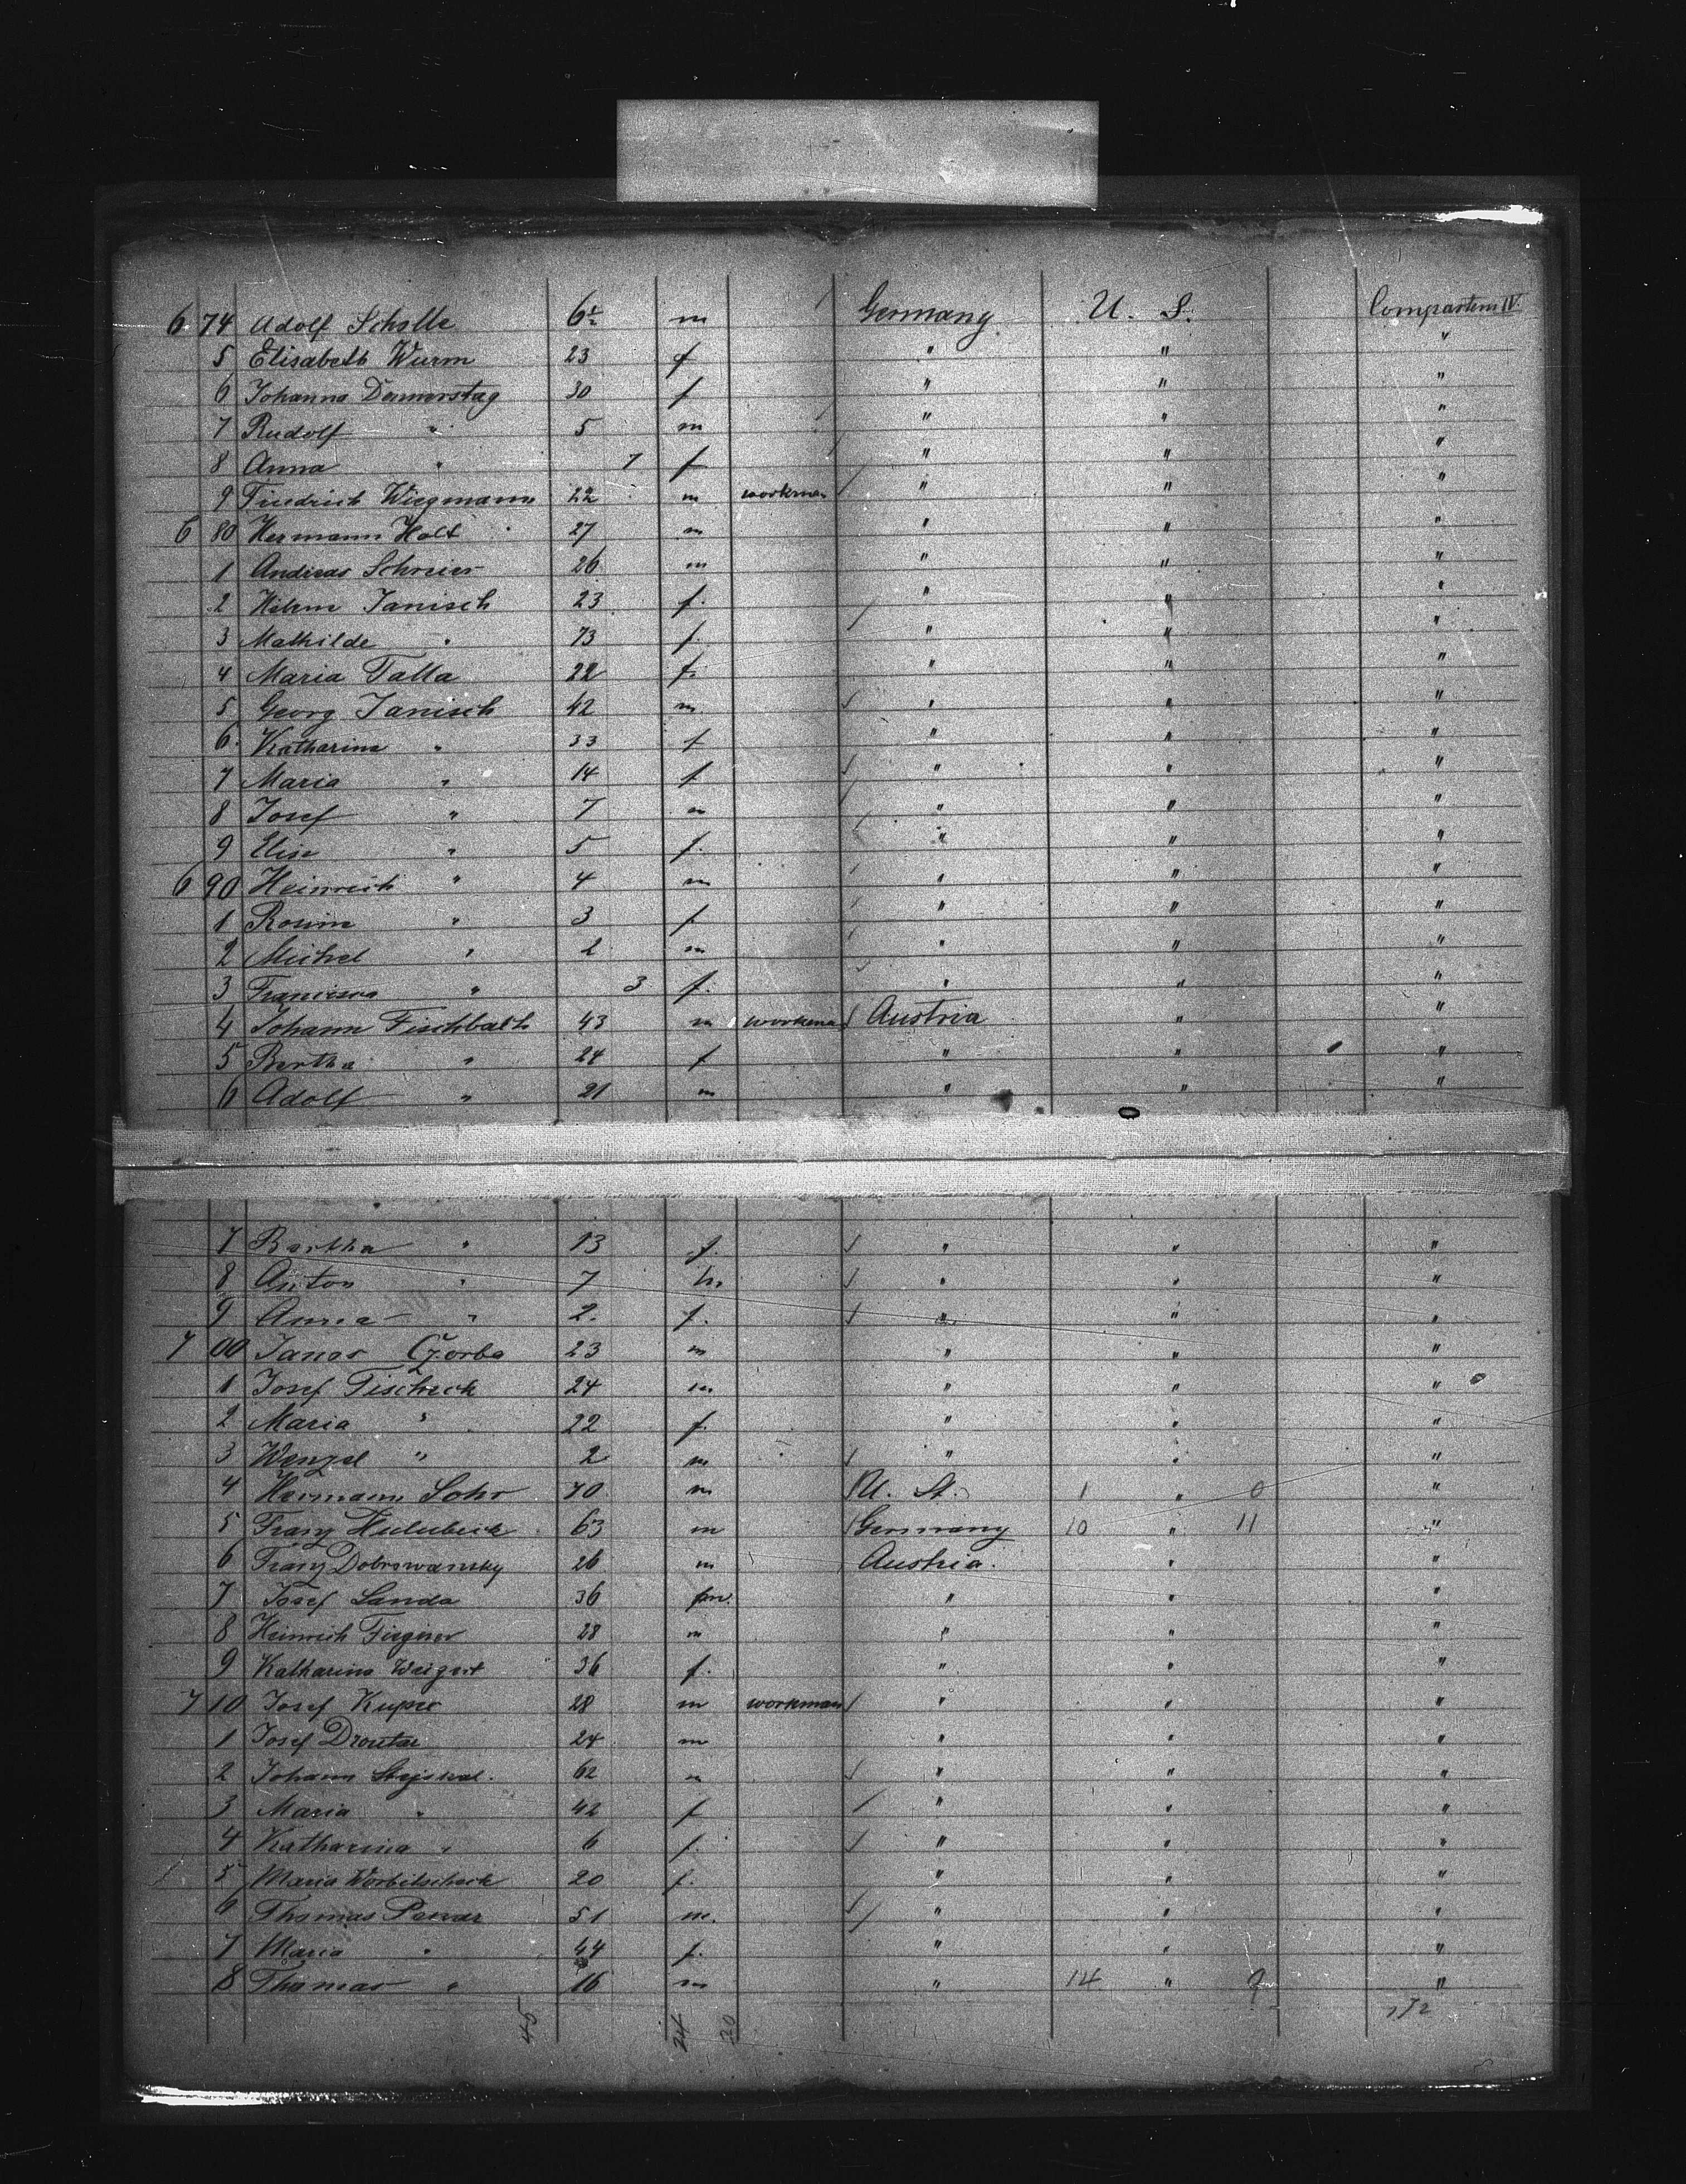 6 74 Adolf Scholle 6½ m Germany U. S. Compartem IV.
5 Elisabeth Wurm 23 f " " "
6 Johanna Donnerstag 30 f " " "
7 Rudolf " 5 m " " "
8 Anna " 7 f " " "
9 Friedrich Wiegmann 22 m workman " " "
6 80 Hermann Holt 27 m " " "
1 Andreas Schreier 26 m " " "
2 Janisch 23 f. " " "
3 Mathilde " 73 f. " " "
4 Maria Talla 22 f. " " "
5 Georg Janisch 42 m. " " "
6 Katharina " 33 f " " "
7 Maria " 14 f " " "
8 Josef " 7 m " " "
9 Elise " 5 f. " " "
6 90 Heinrich " 4 m " " "
1 Rosine " 3 f " " "
2 Michel " 2 m " " "
3 Francisca " 3 f. " " "
4 Johann Fischbach 43 m workman Austria " "
5 Bertha " 24 f " " "
6 Adolf " 21 m " " "
7 Bertha " 13 f. " " "
8 Anton " 7 m " " "
9 Anna " 2. f. " " "
7 00 Janos Czorba 23 m " " "
1 Josef Tischeck 24 m " " "
2 Maria " 22 f. " " "
3 Wenzel " 2 m " " "
4 Hermann Sohr 70 m U. St. 1 " 0 "
5 Franz 63 m Germany 10 " 11 "
6 Franz Dobrowansky 26 m Austria. " "
7 Josef Landa 36 m. " " "
8 Heinrich 28 m " " "
9 Katharina Weigert 36 f. " " "
7 10 Josef 28 m workman " " "
1 Josef 24 m " " "
2 Johann Stejskal. 62 m " " "
3 Maria " 42 f " " "
4 Katharina " 6 f. " " "
5 Maria Worbitscheck 20 f. " " "
6 Thomas 51 m. " " "
7 Maria " 44 f. " " "
8 Thomas " 16 m " 14 " 9 "
45 24 20 172